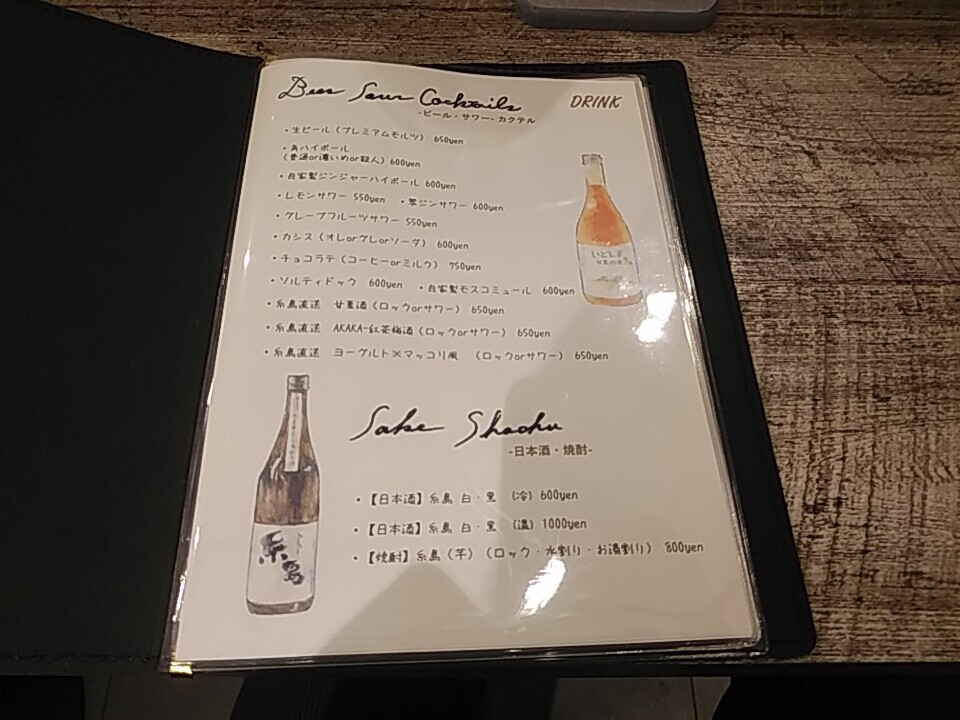 Beer Sour Cocktails
DRINK
-ビール・サワー・カクテル
・生ビール（プレミアムモルツ） 650yen
・角ハイボール
（普通or濃いめor殺人）600yen
・自家製ジンジャーハイボール 600yen
・レモンサワー 550yen ・翠ジンサワー 600yen
・グレープフルーツサワー 550yen
・カシス（オレorグレorソーダ） 600yen
・チョコラテ（コーヒーorミルク） 750yen
・ソルティドック 600yen ・自家製モスコミュール 600yen
・糸島直送 甘夏酒（ロックorサワー） 650yen
・糸島直送 AKAKA-紅茶梅酒（ロックorサワー） 650yen
・糸島直送 ヨーグルト×マッコリ風 （ロックorサワー） 650yen
いとしま
Sake Shochu
-日本酒・焼酎-
・【日本酒】糸島 白・黒 （冷）600yen
・【日本酒】糸島 白・黒 （温）1000yen
・【焼酎】糸島（芋）（ロック・水割り・お湯割り） 800yen
糸島